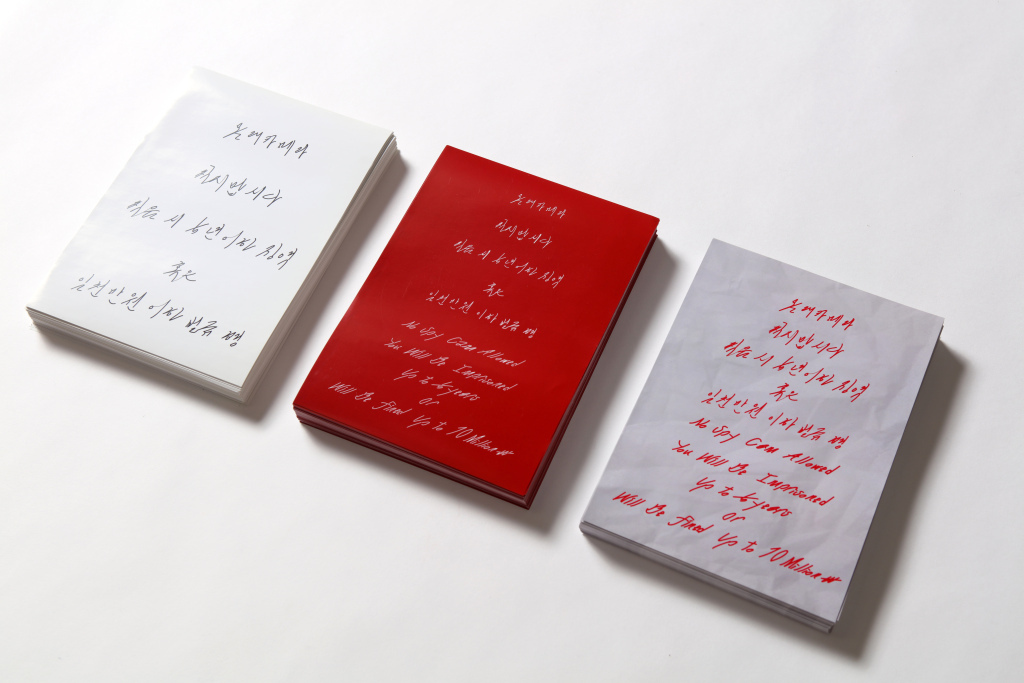 몰래카메라
하지맙시다
찍을 시 5년이하 징역
혹은
일천만원 이하 벌금
몰래카메라
하지맙시다
찍을 시 5년이하 징역
혹은
일천만원 이하 벌금
No Spy Cam Allowed
You Will Be Imprisoned
Up to 5 years
or
Will Be Fined Up to 10 Million ₩
몰래카메라
하지맙시다
찍을 시 5년이하 징역
혹은
일천만원 이하 벌금
No Spy Cam Allowed
You Will Be Imprisoned
Up to 5 years
or
Will Be Fined Up to 10 Million ₩